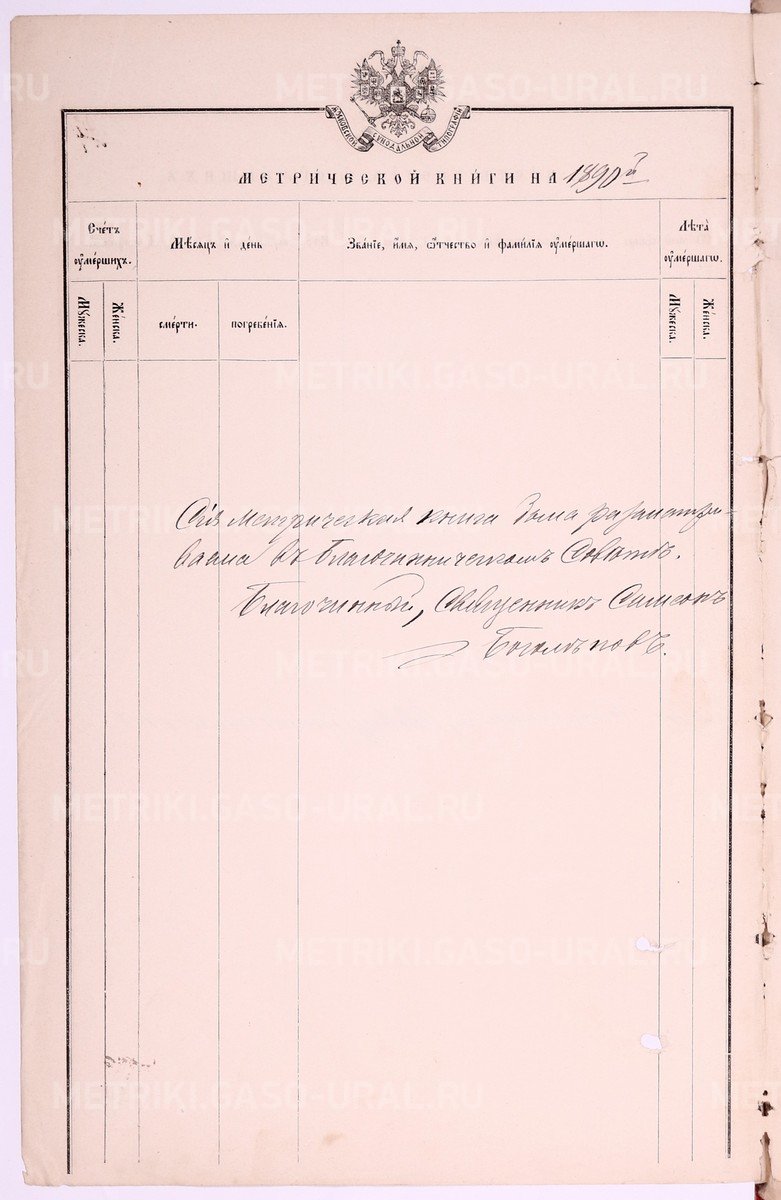 METRIKI.GASO-URAL.RU
МОСКОВСКОЙ СѴНОДАЛЬНОЙ ТИПОГРАФІИ
МЕТРИ́ЧЕСКОЙ КНИ́ГИ НА 1890й
Сче́тъ ᲂуме́ршихъ.
Мѣ́сяцъ и҆ де́нь
Зва́нїе, и҆́мя, ѻ҆́тчество и҆ фами́лїя ᲂуме́ршагѡ.
Лѣ́та ᲂуме́ршагѡ.
Мꙋ́жеска.
Же́нска.
сме́рти.
погребе́нїя.
Мꙋ́жеска.
Же́нска.
Сія метрическая книга была разматри-
ваема въ Благочинническомъ Совѣтѣ.
Благочинный, Священникъ Самсонъ
Боголѣповъ.